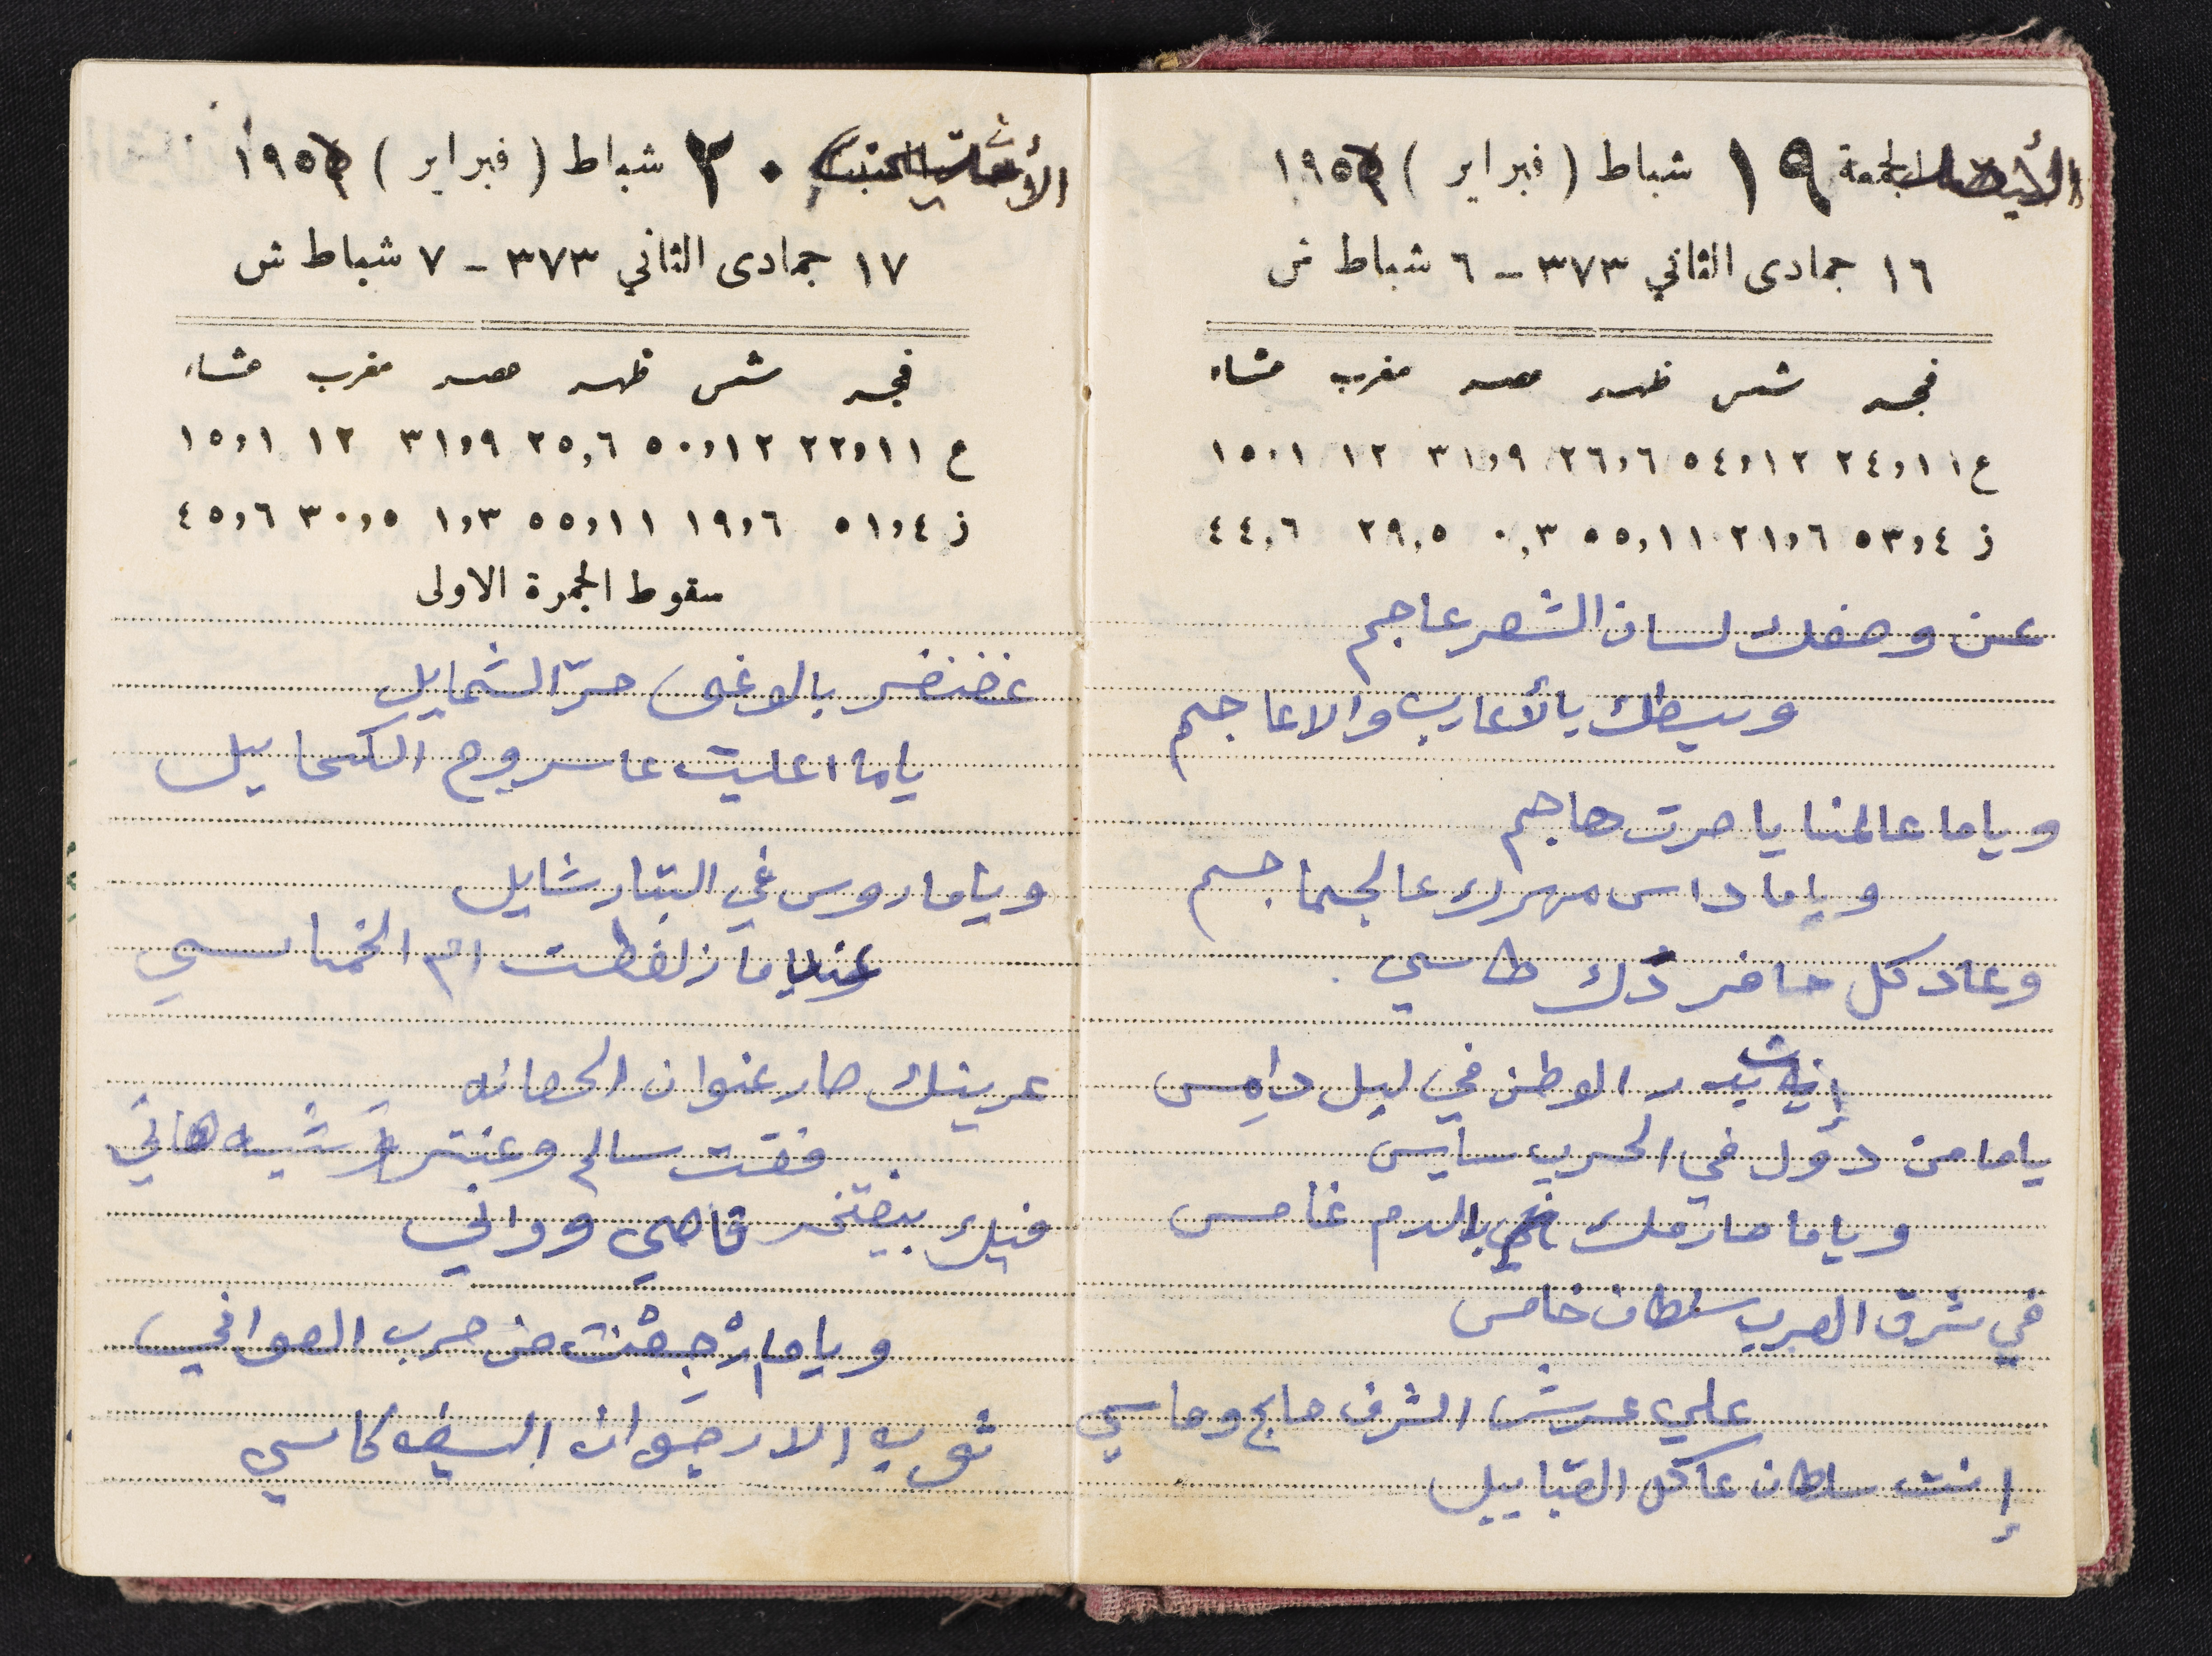 الجمعة ١٩ شباط ( فبراير ) ١٩٥
١٦ جمادى الثاني ٣٧٣ - ٦ شباط ش
فجر شمس ظهر عصر مغرب عشاء
ع ٢٤,١١ ٥٤,١٢ ٢٦,٦ ٣١,٩ ١٢ ١٥,١
ز ٥٣,٤ ٢١,٦ ٥٥,١١ ٠,٣ ٢٩,٥ ٤٤,٦
عن وصفك لسان الشعر عاجم
وسيطك بالأعارب والاعاجم
وياما عالمنايا صرت هاجم
وياما داس مهرك عالجماجم
وعاد كل حافر دك طاسي
إنت بدر الوطن في ليل دامس
ياما من دول في الحرب سايس
وياما صارمك بالدم غامس
في شرق العرب سلطان خامس
علي عرش الشرف صابح وماسي
إنت سلطان عا كل القبايل
٢٠ شباط ( فبراير ) ١٩٥
١٧ جمادى الثاني ٣٧٣ - ٧ شباط ش
فجر شمس ظهر عصر مغرب عشاء
ع ٢٢,١١ ٥٠,١٢ ٢٥,٦ ٣١,٩ ١٢ ١٥,١
ز ٥١,٤ ١٩,٦ ٥٥,١١ ١,٣ ٣٠,٥ ٤٥,٦
سقوط الجمرة الاولى
غضنفر بالوغى حرّ الشمايل
ياما اعليت عا سروج الكحايل
وياما روس في البتار شايل
عند ما زلفطت ام الخماسي
عرينك صار عنوان الحصانه
فقت سالم وعنتر وشيبه هاني
فيك بيفتخر قاصي وداني
وياما رْجعْت من حرب العوافي
ثوب الارجوان السيف كاسي